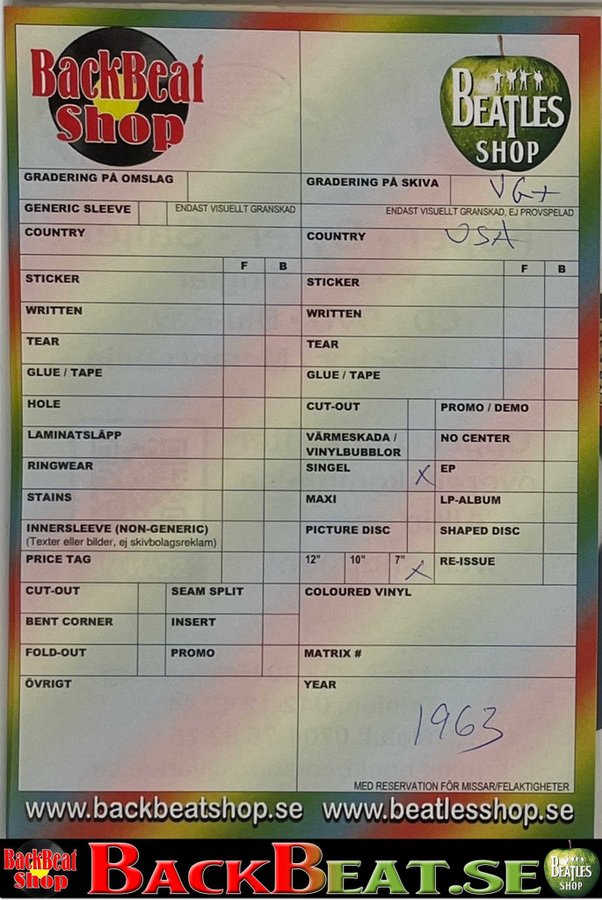 BackBeat
Shop
BEATLES
SHOP
GRADERING PÅ OMSLAG
GENERIC SLEEVE
ENDAST VISUELLT GRANSKAD
COUNTRY
F B
STICKER
WRITTEN
TEAR
GLUE / TAPE
HOLE
LAMINATSLÄPP
RINGWEAR
STAINS
INNERSLEEVE (NON-GENERIC)
(Texter eller bilder, ej skivbolagsreklam)
PRICE TAG
CUT-OUT SEAM SPLIT
BENT CORNER INSERT
FOLD-OUT PROMO
ÖVRIGT
GRADERING PÅ SKIVA VG+
ENDAST VISUELLT GRANSKAD, EJ PROVSPELAD
COUNTRY USA
F B
STICKER
WRITTEN
TEAR
GLUE / TAPE
CUT-OUT PROMO / DEMO
VÄRMESKADA / NO CENTER
VINYLBUBBLOR
SINGEL X EP
MAXI LP-ALBUM
PICTURE DISC SHAPED DISC
12" 10" 7" X RE-ISSUE
COLOURED VINYL
MATRIX #
YEAR
1963
MED RESERVATION FÖR MISSAR/FELAKTIGHETER
www.backbeatshop.se www.beatlesshop.se
BackBeat
Shop
BACKBEAT.SE
BEATLES
SHOP